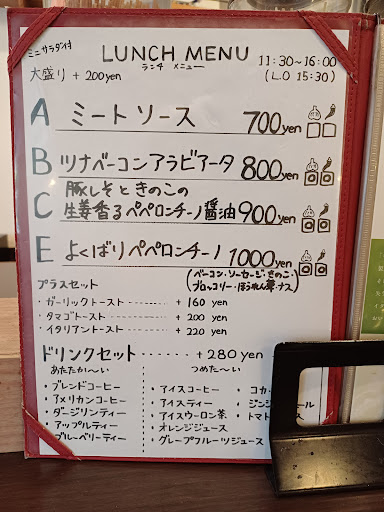 ミニサラダ付
大盛り + 200yen
LUNCH MENU
ランチ メニュー
11:30~16:00
(L.O 15:30)
A ミートソース 700yen
B ツナベーコンアラビアータ 800yen
C 豚しそときのこの
生姜香るペペロンチーノ醤油 900yen
E よくばりペペロンチーノ 1000yen
(ベーコン・ソーセージ・きのこ・
ブロッコリー・ほうれん草・ナス)
プラスセット
・ガーリックトースト ------ + 160 yen
・タマゴトースト -------- + 200 yen
・イタリアントースト ------ + 220 yen
ドリンクセット ------ + 280 yen
あたたか〜い
・ブレンドコーヒー
・アメリカンコーヒー
・ダージリンティー
・アップルティー
・ブルーベリーティー
つめた〜い
・アイスコーヒー
・アイスティー
・アイスウーロン茶
・オレンジジュース
・グレープフルーツジュース
・コカ
・ジンジ ール
・トマト ス